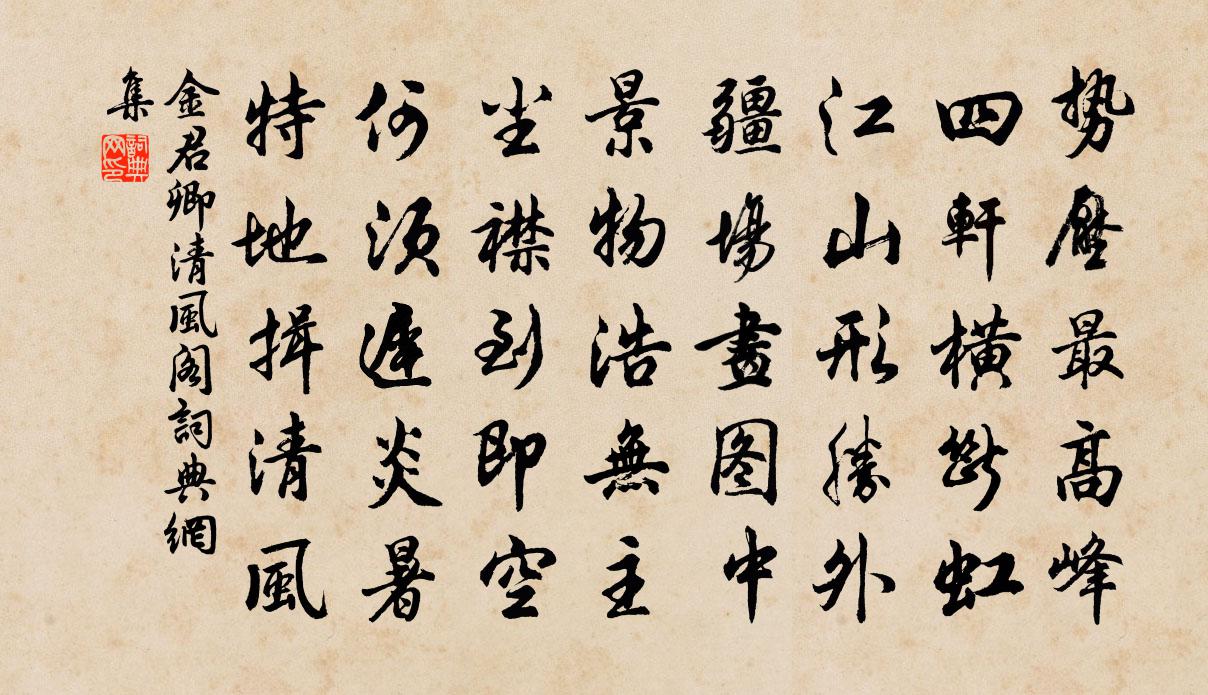 势压最高峰
四軒橫斷虹
江山形勝外
疆場畫图中
景物浩無主
尘襟到即空
何須遲炎暑
特地揖清風
金君卿清風阁詞典網
集
詞典
网印